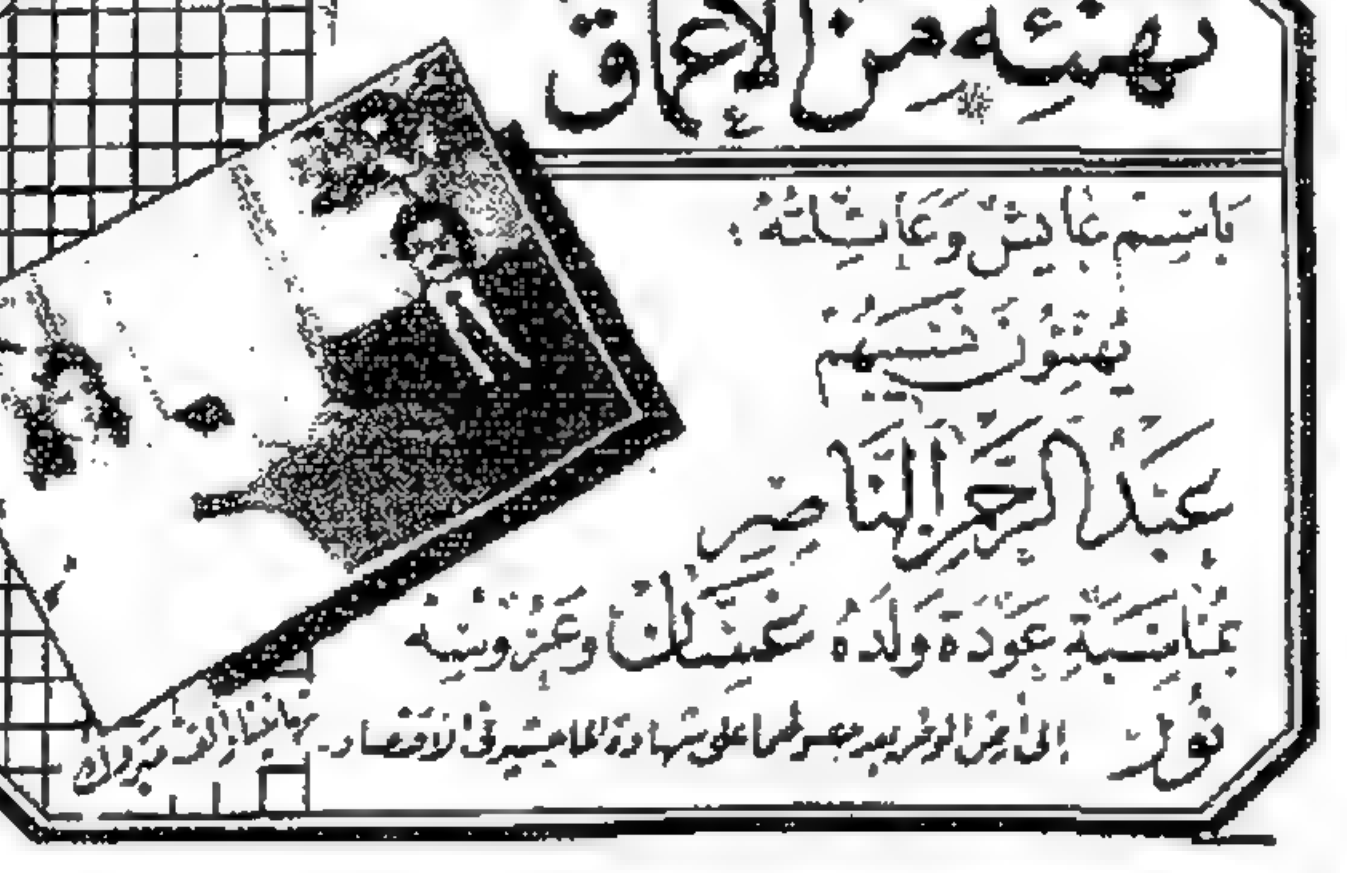 تهنئة من الأعماق
باسم عايش وعائلته:
يهنئون نسيبهم
عبد الرحمن الناصر
بمناسبة عودة ولده غسان وعروسه
نور إلى أرض الوطن بعد حصولهما على شهادة الماجستير في الاقتصاد.
تهانينا وألف مبروك